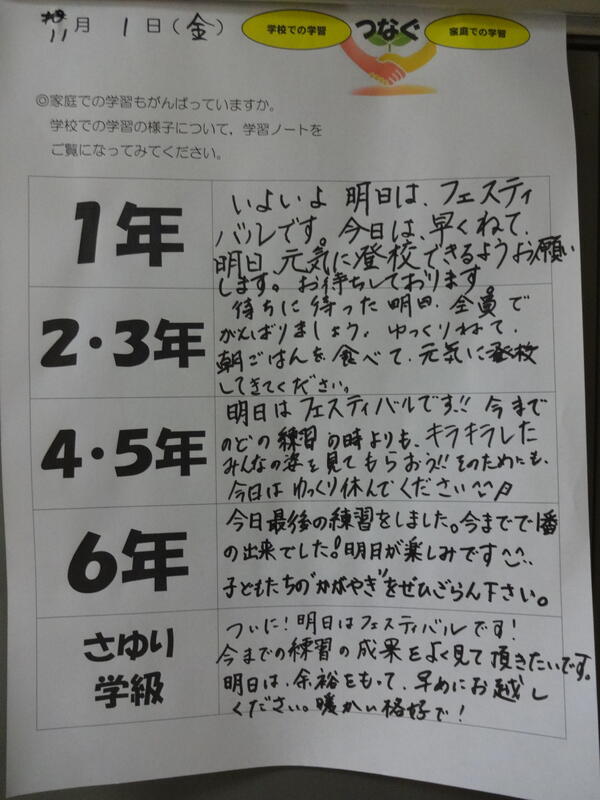 11月 1日(金)
学校での学習 つなぐ 家庭での学習
◎家庭での学習もがんばっていますか。
学校での学習の様子について，学習ノートを
ご覧になってみてください。
1年
いよいよ 明日は、フェスティ
バルです。今日は、早くねて、
明日 元気に登校できるようお願い
します。お待ちしております。
2・3年
待ちに待った明日、全員で
がんばりましょう。ゆっくりねて、
朝ごはんを食べて、元気に登校
してきてください。
4・5年
明日はフェスティバルです!! 今まで
のどの練習の時よりも、キラキラした
みんなの姿を見てもらおう!! そのためにも、
今日はゆっくり休んでください
6年
今日最後の練習をしました。今までで1番
の出来でした!明日が楽しみです
子どもたちの"かがやき"をぜひごらん下さい。
さゆり
学級
ついに!明日はフェスティバルです!
今までの練習の成果をよく見て頂きたいです。
明日は、余裕をもって、早めにお越し
ください。暖かい格好で!